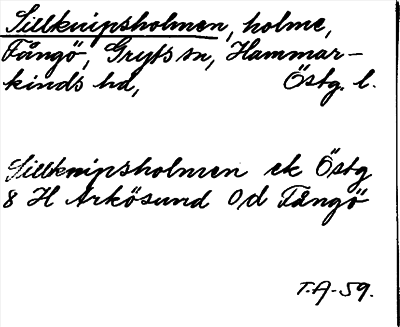 Sillknipsholmen, holme,
Fångö, Gryts sn, Hammar-
kinds hd, Östg. l.
Sillknipsholmen ek Östg
8 H Arkösund Od Fångö
T.A-59.